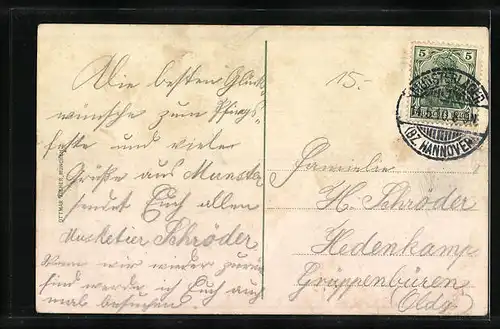 Die besten Glück-
wünsche zum Pfings-
feste und vieler
Grüße aus Munster
sendet Euch allen
Musketier Schröder
Wenn wir wieder zurück
sind werde ich Euch auch
mal besuchen.
15.-
5 5
(BZ. HANNOVER)
Familie
H. Schröder
Hedenkamp
Grüppenbüren
Oldg.